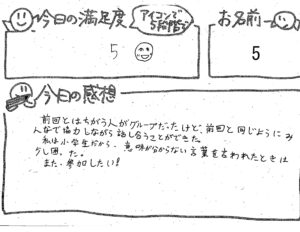 今日の満足度
アイコンで
5段階で
お名前
5
5
今日の感想
前回とはちがう人がグループだったけど、前回と同じようにみ
んなで協力しながら話し合うことができた。
私は小学生だから、意味が分からない言葉を言われたときは
少し困った。
また、参加したい!